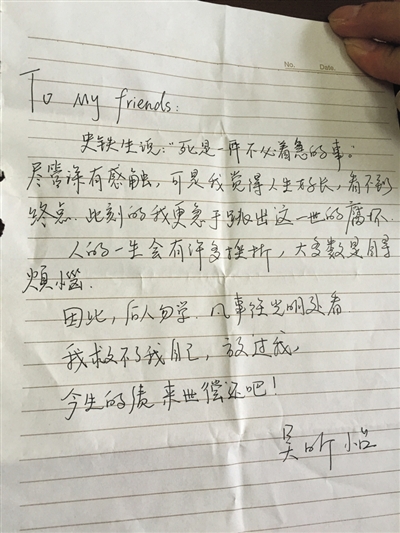 No.  Date.
To My friends:
史铁生说:"死是一件不必着急的事。"
尽管深有感触,可是我觉得人生好长,看不到
终点.此刻的我更急于跳出这一世的腐坏.
人的一生会有许多挫折,大多数是自寻
烦恼.
因此,后人勿学.凡事往光明处看.
我救不了我自己,放过我,
今生的债来世偿还吧!
吴昕怡